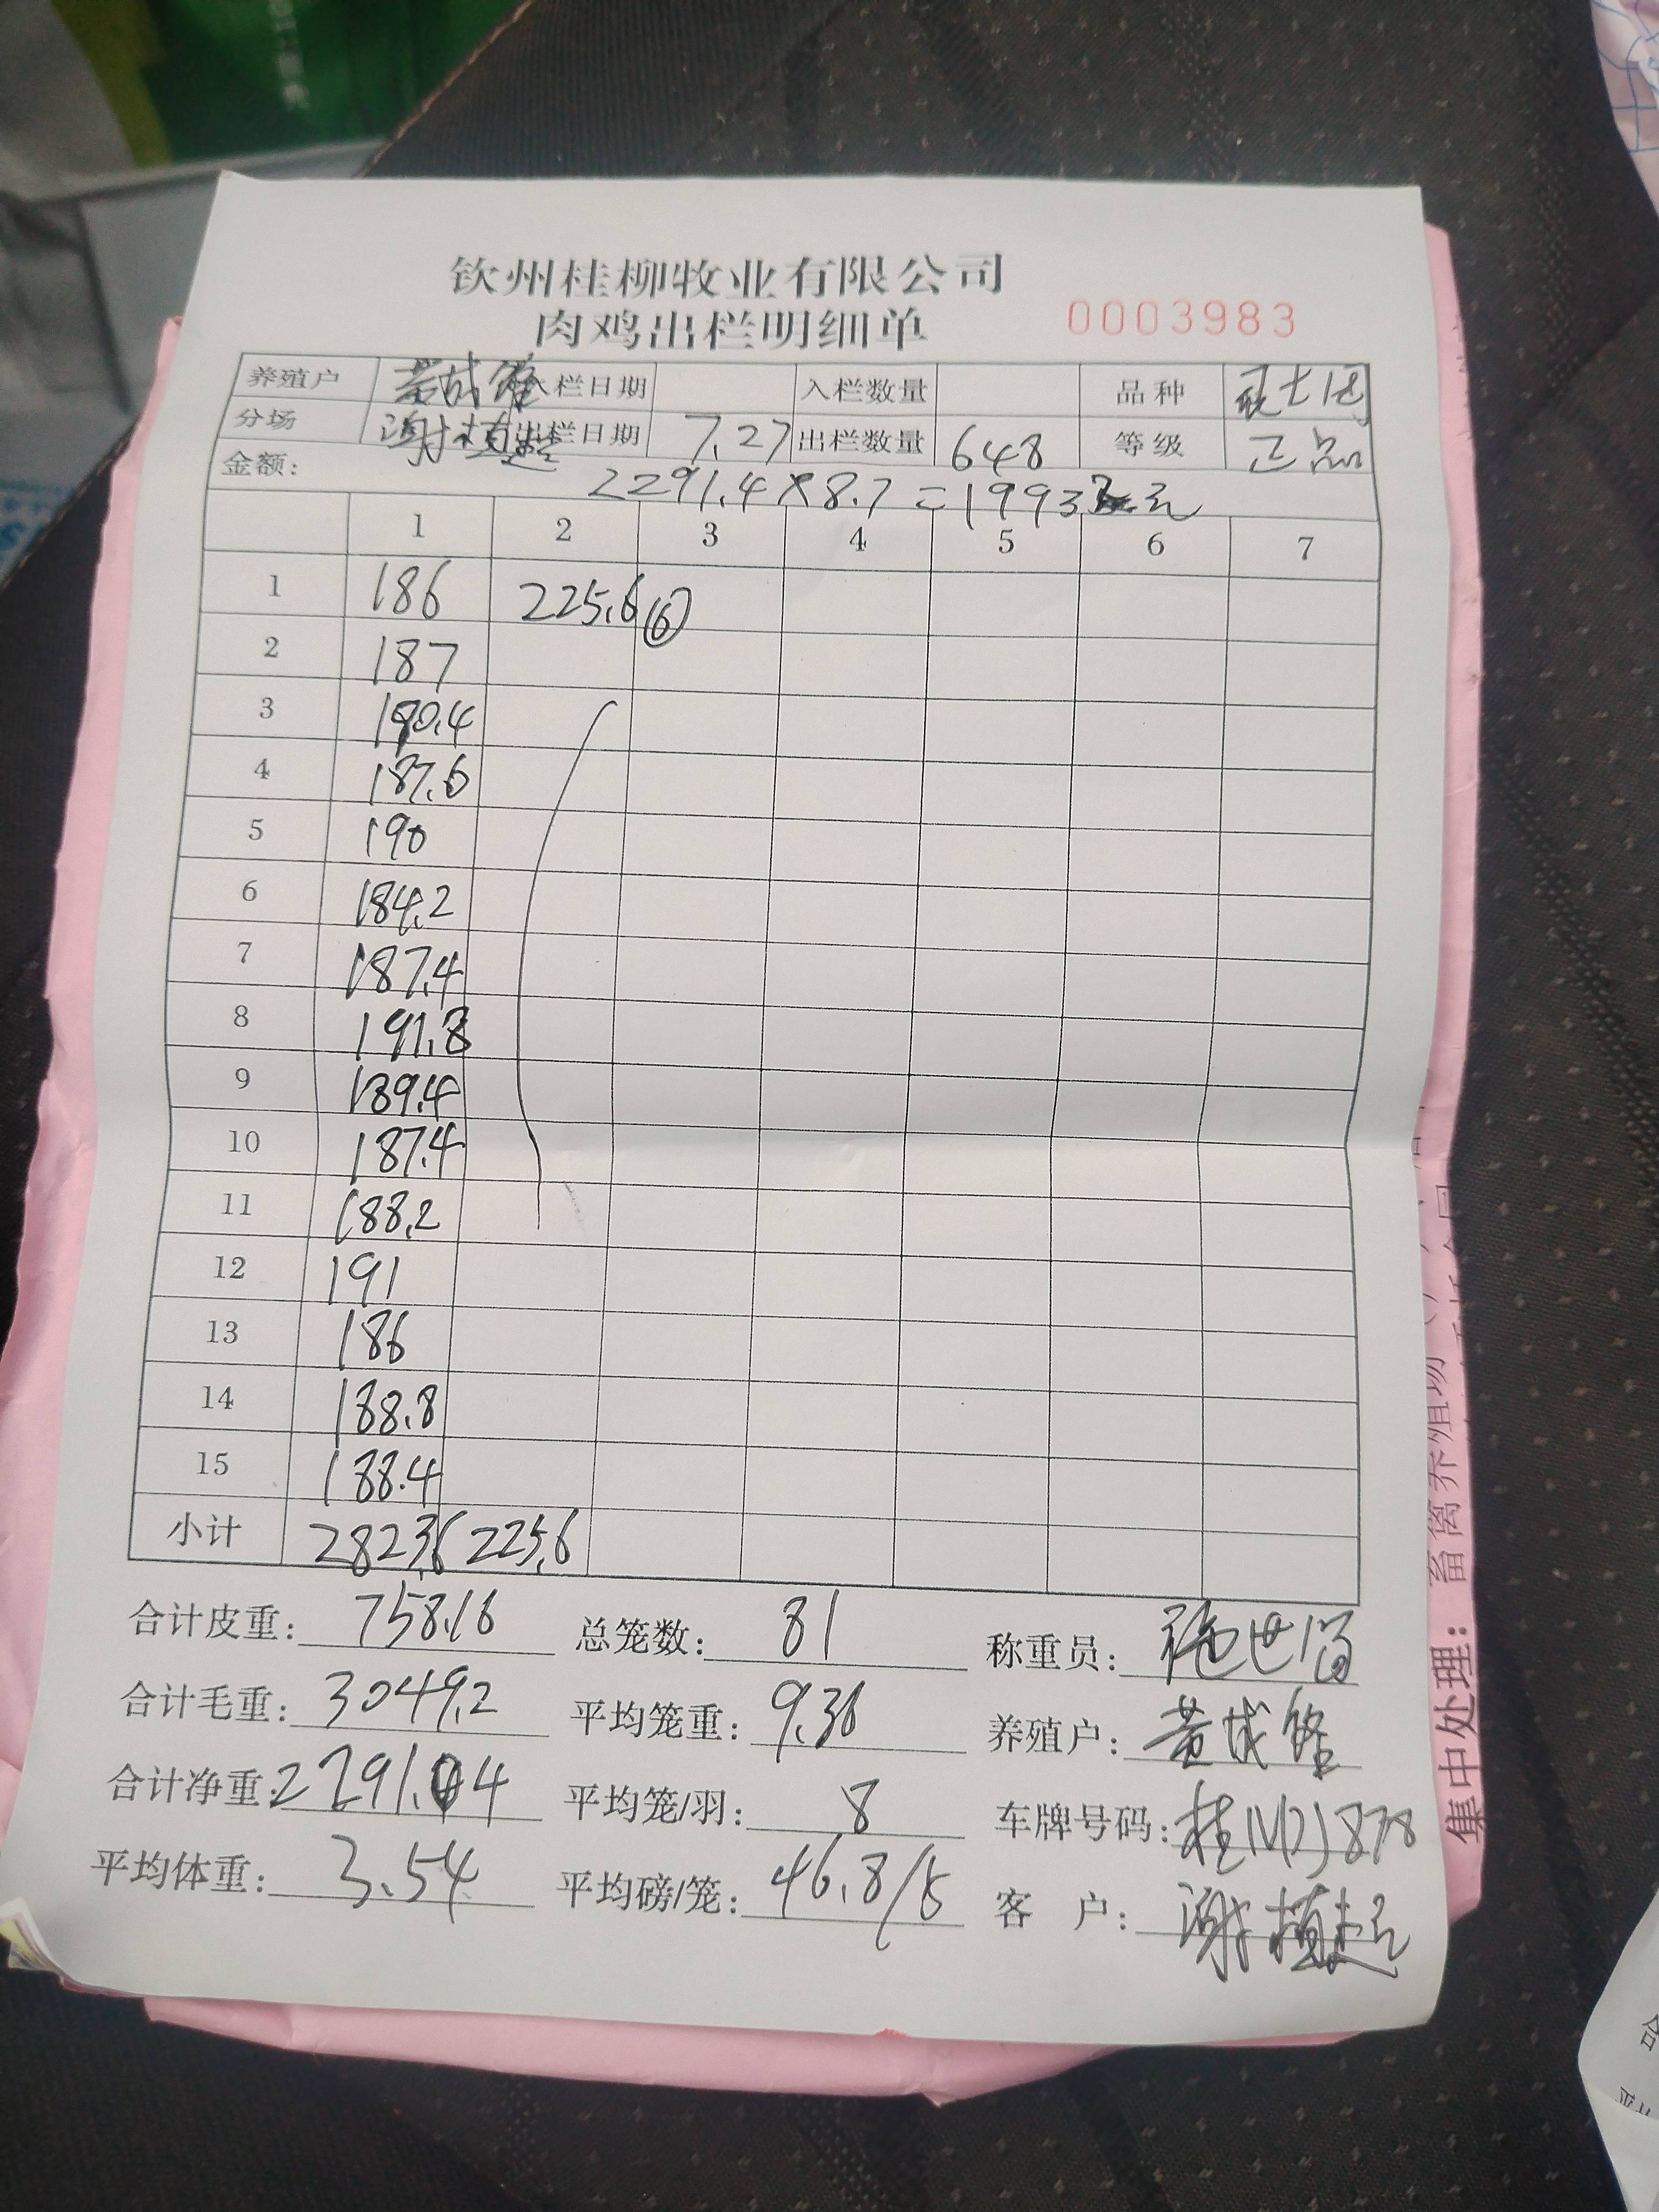 钦州桂柳牧业有限公司
肉鸡出栏明细单 0003983
养殖户 入栏日期 入栏数量 品种
分场 谢植超 出栏日期 7.27 出栏数量 648 等级 正品
金额: 2291.4×8.7=19937元
1 2 3 4 5 6 7
1 186 225.6 ⑥
2 187
3 190.4
4 187.6
5 190
6 184.2
7 187.4
8 191.8
9 189.4
10 187.4
11 188.2
12 191
13 186
14 188.8
15 188.4
小计 2823.6 225.6
合计皮重: 758.16 总笼数: 81 称重员:
合计毛重: 3049.2 平均笼重: 9.36 养殖户:
合计净重: 2291.04 平均笼/羽: 8 车牌号码:
平均体重: 3.54 平均磅/笼: 46.8/5 客户: 谢植超
集中处理: